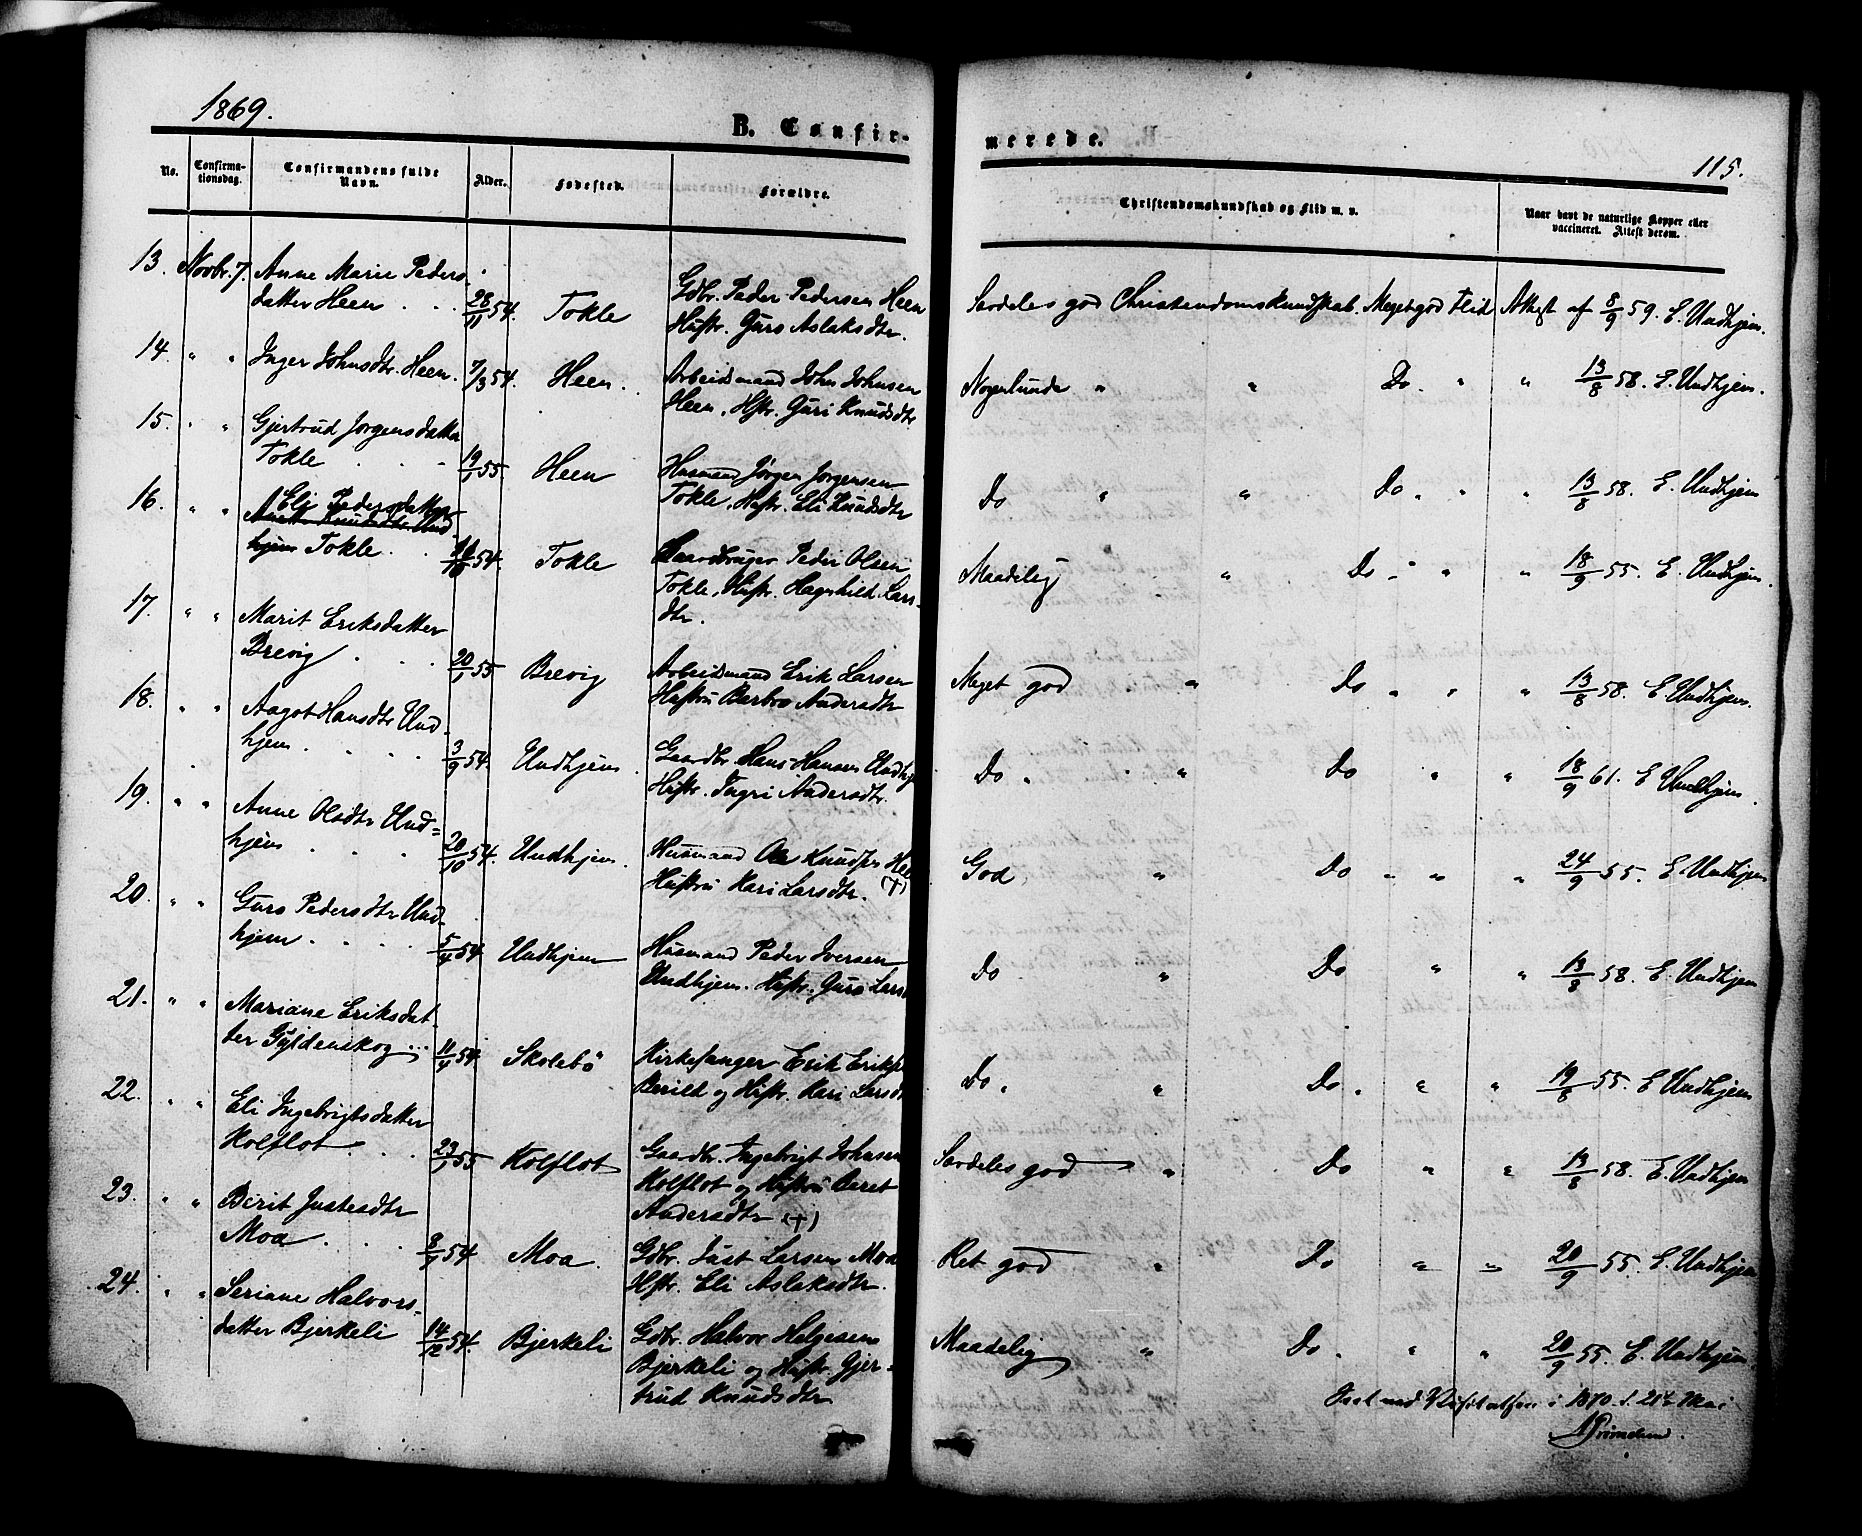 1869.
B. Confir-
merede.
115.
No.
Confirma-
tionsdag.
Confirmandens fulde
Navn.
Alder.
Fødested.
Forældre.
Christendomskundskab og Flid m. v.
Naar havt de naturlige Kopper eller
vaccineret. Attest derom.
13. Novbr. 7. Anne Marie Peders-
datter Heen . . 28/11 54. Tokle
Gbr. Peder Pedersen Heen
Hustr. Guro Aslaksdtr.
Særdeles god Christendomskundskab. Meget god Flid Attest af 8/9 59. E. Undhjem.
14. " " Inger Johnsdtr. Heen. 7/3 54. Heen.
Arbeidsmand John Johnsen
Heen, Hstr. Guri Knudsdtr
Nogenlunde " " Do. " " 13/8 58. E. Undhjem.
15. " " Gjertrud Jørgensdatter
Tokle . . . 19/1 55 Heen
Husmand Jørgen Jørgensen
Tokle, Hustr. Eli Knudsdtr
Do " " Do. " " 13/8 58. E. Undhjem
16. " " Eli Pedersdatter
Knudsdtr. Und
hjem Tokle . . 54. Tokle
Gaardbruger Peder Olsen
Tokle, Hustr. Hagnhild Lars-
dtr.
Maadelig " Do " " 18/9 55. E. Undhjem.
17. " " Marit Eriksdatter
Brevig . . . 20/1 55 Brevig
Arbeidsmand Erik Larsen
Hustru Barbro Andersdtr
Meget god " Do " " 13/8 58. E Undhjem.
18. " " Aagot Hansdtr Und-
hjem . . . 3/9 54. Undhjem.
Gaardbr. Hans Hansen Undhj
Hustr. Ingri Andersdtr.
Do. " Do " " 18/9 61. E Undhjem.
19. " " Anne Olsdtr Und=
hjem . . . 20/10 54. Undhjem.
Husmand Ole Knudsen Hee
Hustru Kari Larsdtr. (+)
God " Do " " 24/9 55. E. Undhjem
20. " " Guro Pedersdtr Und-
hjem . . . 5/4 54 Undhjem
Husmand Peder Iversen
Undhjem. Hustr. Guro Lars
Do " Do " " 13/8 58. E. Undhjem
21. " " Mariane Eriksdat-
ter Gyldenskog ... 11/4 54. Skolebø
Kirkesanger Erik Eriks
Berild og Hustr. Kari Larsd
Do. " Do. " " 19/8 55. E Undhjem
22. " " Eli Ingebrigtsdatter
Kolflot . . . 23/1 55 Kolflot
Gaardbr. Ingebrigt Johnsen
Kolflot og Hustru Beret
Andersdtr (+)
Særdeles god " Do " " 13/8 58. E. Undhjem
23. " " Berit Justesdtr
Moa . . . 54 Moa.
Gbr. Just Larsen Moa
Hstr. Eli Aslaksdtr.
Ret god " Do " " 20/9 55. E. Undhjem
24. " " Seriane Halvors-
datter Bjerkeli 14/12 54. Bjerkeli
Gbr. Halvor Helgesen
Bjerkeli og Hustr. Gjer-
trud Knudsdtr
Maadelig " Do. " " 20/9 55. E. Undhjem.
i 1870. d. 21de Mai